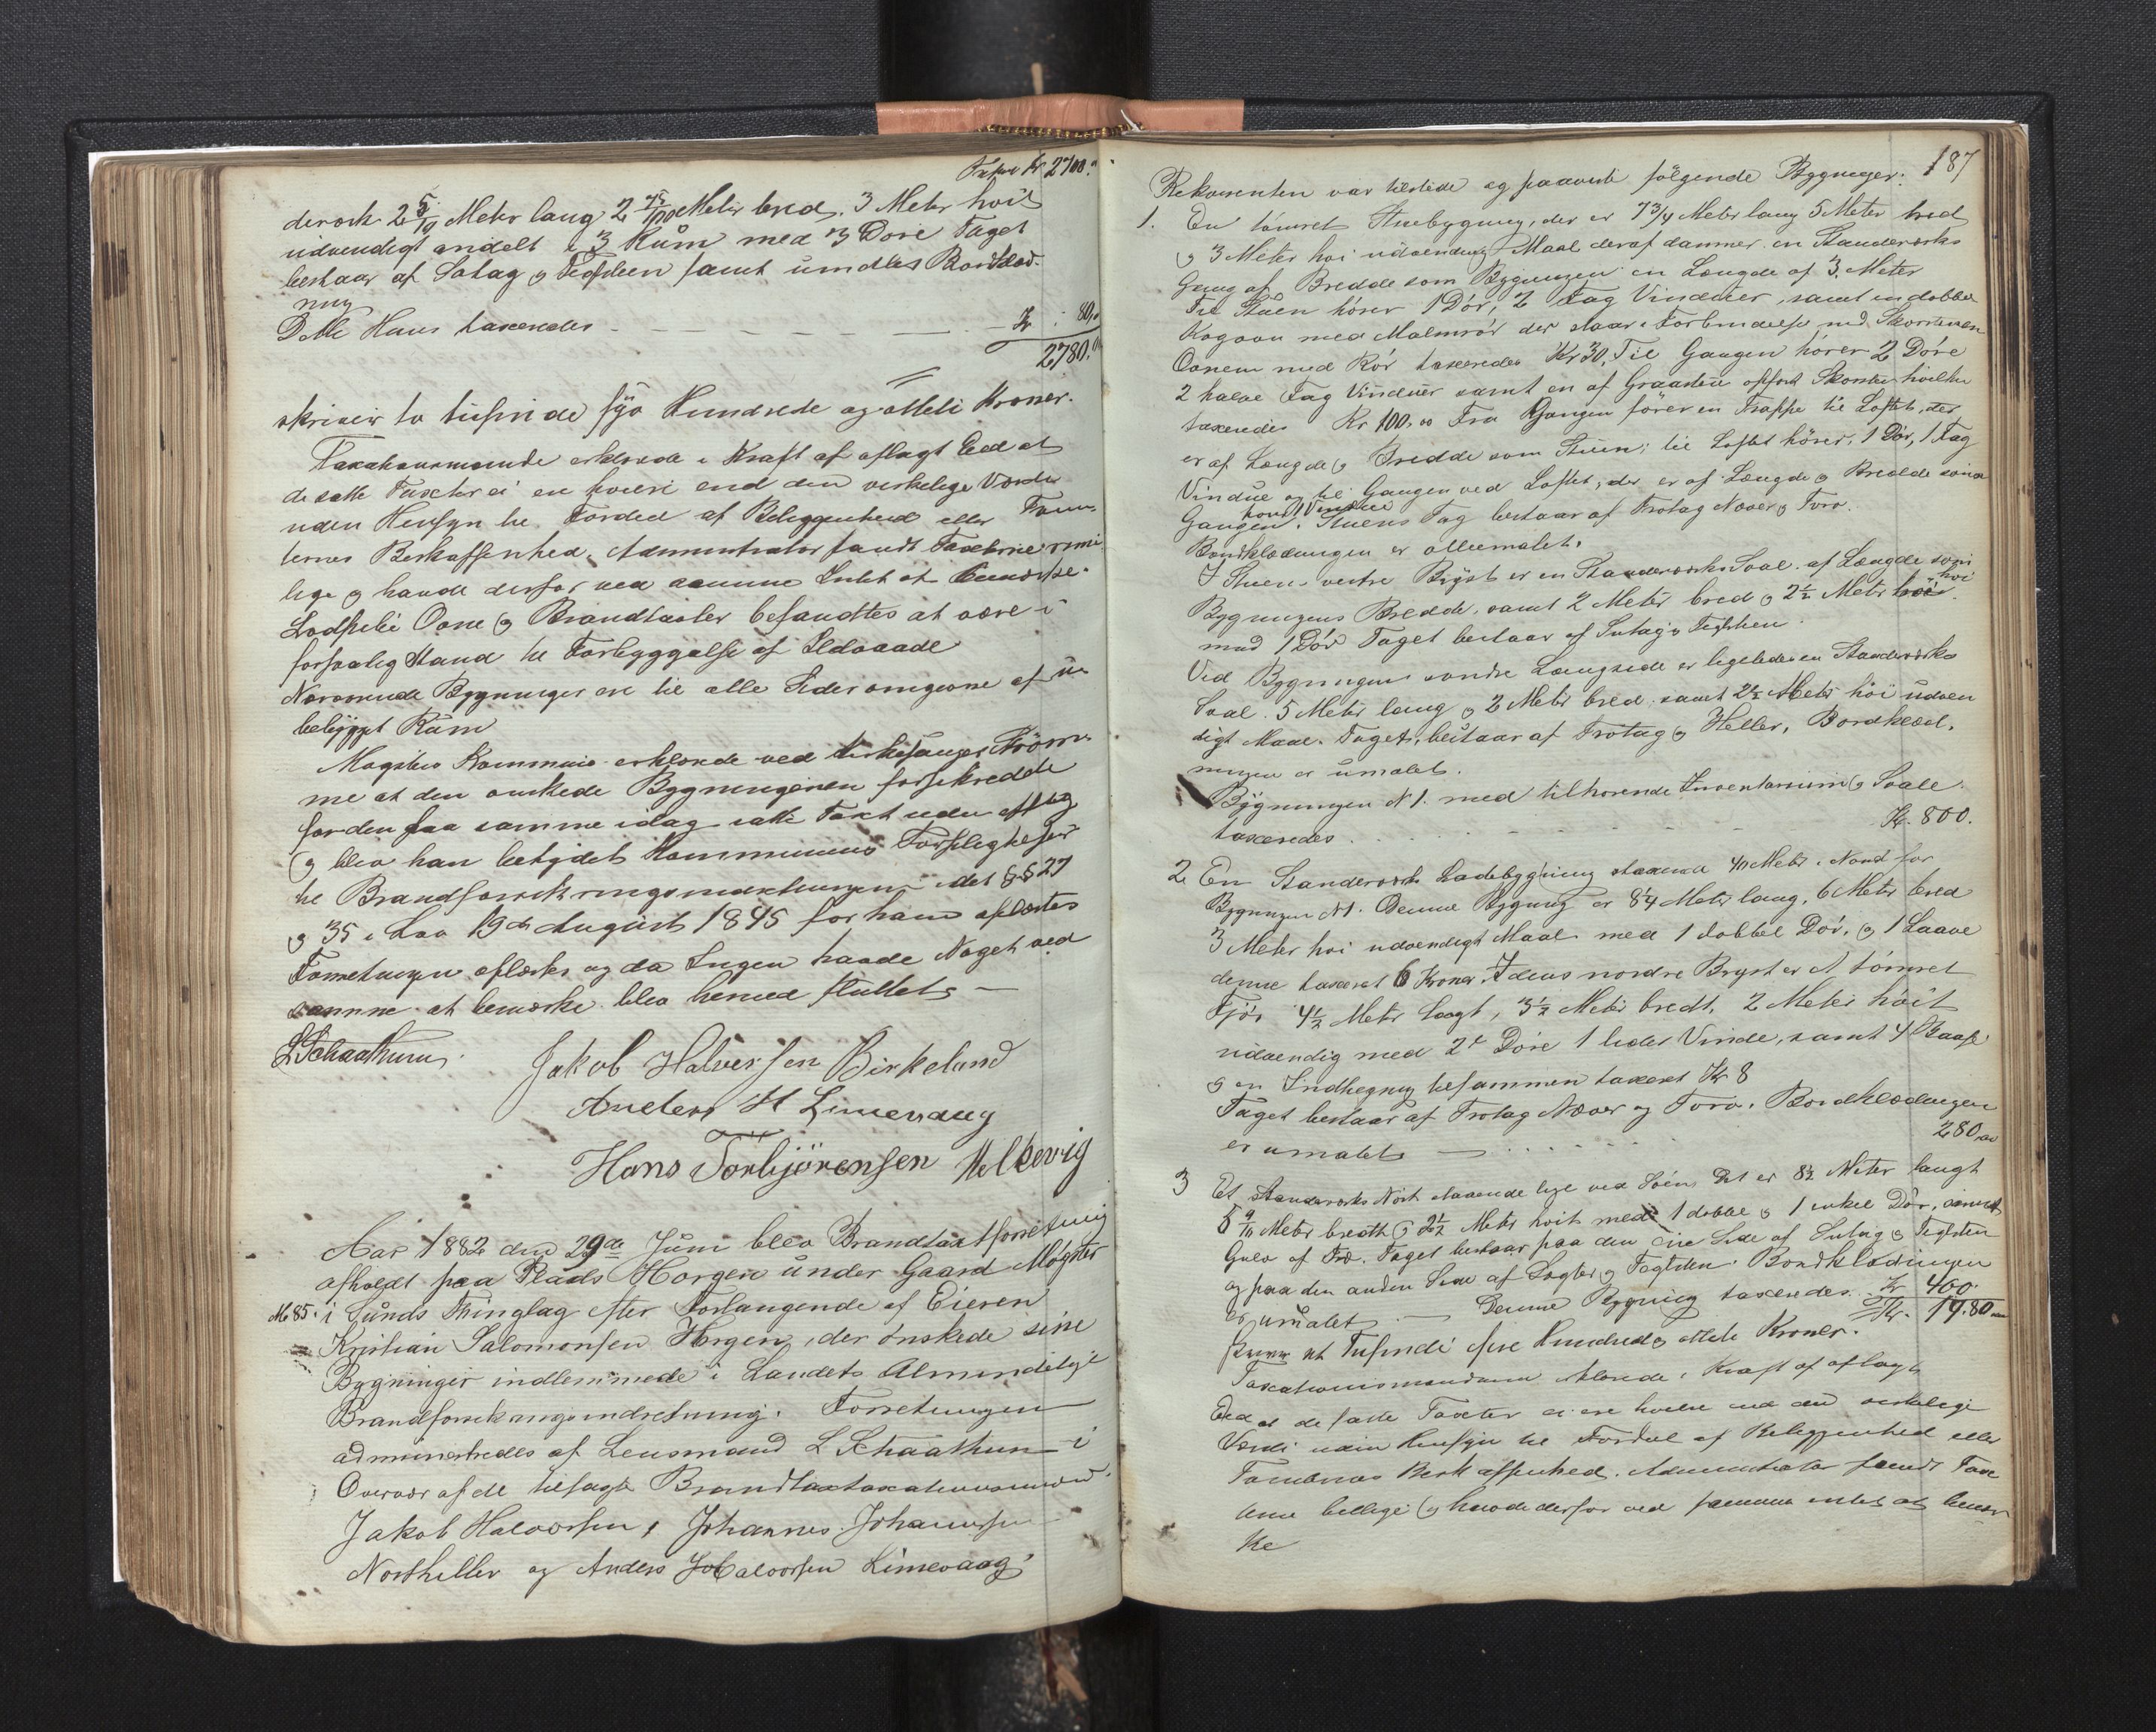 Taxt Kr 2700.
derværk 2 5/10 Meter lang 2 75/100 Meter bred. 3 Meter høit
udvendigt andelt i 3 Rum med 3 Døre Taget
bestaar af Sutag og Teglsteen samt umalet Bordklæd-
ning
Dette Huus taxeredes - - - - - Kr. 80,00
2780.00
skriver to tusinde syv Hundrede og otteti Kroner.
Taxationsmændene erklærede i Kraft af aflagt Eed at
de satte Taxter ei er høiere end den virkelige Værdi
uden Hensyn til Fordeel af Beliggenhed eller Tom-
ternes Beskaffenhed. Administrator fandt Taxterne rime
lige og havde derfor ved samme Intet at bemærke.
Ildsteder Ovne og Brandtavler befandtes at være i
forsvarlig Stand til Forbyggelse af Ildvaade
Nærværende Bygninger ere til alle Sider omgivne af u-
bebygget Rum
Møgster Kommune erklærede ved
me at den ønskede Bygningerne forsikrede
for den paa samme idag satte Taxt uden Afslag
og blev han betydet Kommunens Forpligtelser
til Brandforsikringsindretningen idet §§ 27
og 35 i Lov 19de August 1845 for ham oplæstes
Forretningen oplæstes og da Ingen havde Noget ved
samme at bemærke blev hermed sluttet -
L Schaathun
Jakob Halversen Birkeland
Anders H Limevaag
Hans Torbjörensen Melkevig
Aar 1882 den 29de Juni blev Brandtaxtforretning
afholdt paa Plads Horgen under Gaard Møgster
No 85. i Sunds Thinglag efter Forlangende af Eieren
Kristian Salomonsen Horgen, der ønskede sine
Bygninger indlemmede i Landets Almindelige
Brandforsikringsindretning. Forretningen
administredes af Lensmand L Schaathun i
Overvær af de tilsagte Brandtaxtaxationsmænd
Jakob Halvorsen, Johannes Johannesen
Nordheller og Anders Halvorsen Limevaag.
187
Rekvirenten var tilstede og paaviste følgende Bygninger:
1. En tømret Stuebygning, der er 7 3/4 Meter lang 5 Meter bred
og 3 Meter høi udvendigt Maal deraf danner en Standerværks
Gang af Bredde som Bygningen en Længde af 3. Meter
Til Stuen hører 1 Dør, 2 Fag Vinduer, samt en dobbel
Kogovn med Malmrør der staar i Forbindelse med Skorstenen
Ovnen med Rør taxeredes Kr 30. Til Gangen hører 2 Døre
2 halve Fag Vinduer samt en af Graasten opført Skorsten hvilken
taxeredes Kr 100.00 Fra Gangen fører en Trappe til Loftet, der
er af Længde og Bredde som Stuen; til Loftet hører, 1 Dør, 1 Fag
Vindue og til Gangen ved Loftet, der er af Længde og Bredde som
hører 1 Vindue
Gangen. Stuens Tag bestaar af Trotag Næver og Torv.
Bordklædningen er oliemalet.
I Stuens vestre Bryst er en Standerværks Sval. af Længde som
Bygningens Bredde, samt 2 Meter bred og 2 1/2 Meter høi
med 1 Dør Taget bestaar af Sutag og Teglsten.
Ved Bygningens søndre Langside er ligeledes en Standerværks
Sval. 5 Meter lang og 2 Meter bred, samt 2 1/2 Meter høi udven
digt Maal. Taget, bestaar af Trotag og Heller, Bordklæd-
ningen er umalet.
Bygningen N 1. med tilhørende Inventarium og Svale
taxeredes . . . . Kr. 800.
2 En Standerværks Ladebygning staaende 40 Meter i Nord for
Bygningen N 1. Denne Bygning er 8 1/4 Meter lang, 6 Meter bred
3 Meter høi udvendigt Maal med 1 dobbel Dør, og 1 Laave
denne taxeret 6 Kroner. I dens nordre Bryst er et tømret
Fjøs 4 1/2 Meter langt, 3 1/2 Meter bredt, 2 Meter høit
udvendig med 2de Døre 1 lidet Vindue, samt 4 Baase
og en Indhegning tilsammen taxeret Kr 8
Taget bestaar af Trotag Næver og Torv. Bordklædningen
er umalet - . . . . . 280,00
3 Et Standerværks Nøst staaende lige ved Søen. Det er 8 1/2 Meter langt
5 9/10 Meter bredt og 2 1/2 Meter høit med 1 dobbel og 1 enkel Dør, samt
Gulv af Træ. Taget bestaar paa den ene Side af Sutag og Teglsten
og paa den anden Side af Lægter og Teglsten. Bordklædningen
er umalet - Denne Bygning taxeredes. Kr 400.
Kr. 14.80
Skriver et Tusinde fire Hundrede og otteti Kroner.
Taxationsmændene erklærede i Kraft af aflagt
Eed at de satte Taxter ei ere høiere end den virkelige
Værdi uden Hensyn til Fordel af Beliggenhed eller
Tomternes Beskaffenhed. Administrator fandt Taxt
erne billige og havde derfor ved samme intet at bemær
ke